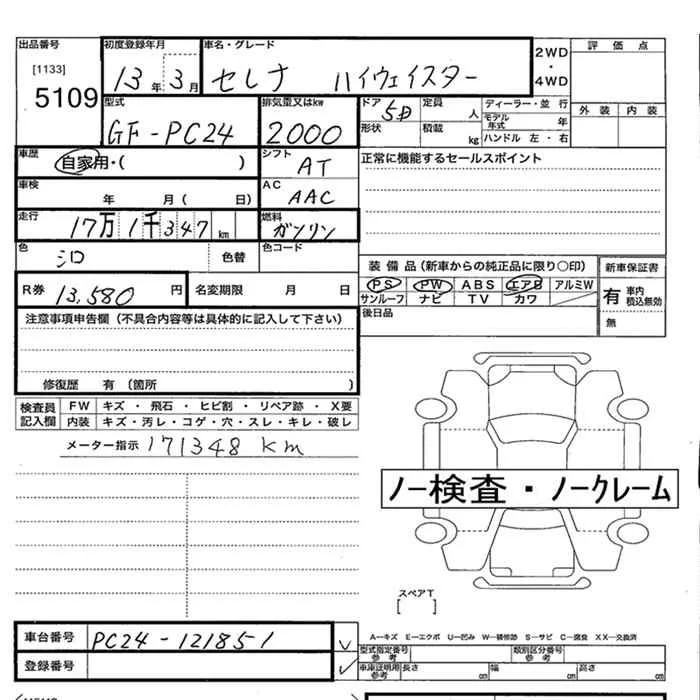 出品番号 初度登録年月 車名・グレード 2WD 評価点
[1133] 13年 3月 セレナ ハイウェイスター ・
5109 4WD 外装 内装
型式 排気量又はkw ドア 5D 定員 人 ディーラー・並行
GF-PC24 2000 形状 積載 kg モデル年式 年
ハンドル 左・右
車歴 自家用・( ) シフト AT 正常に機能するセールスポイント
車検 年 月( 日) AC AAC
走行 17万1千347km 燃料 ガソリン
色 シロ 色替 色コード
装備品(新車からの純正品に限り○印) 新車保証書
R券 13,580 円 名変期限 月 日 PS PW ABS エアB アルミW 有 車内積込無効
サンルーフ ナビ TV カワ
注意事項申告欄(不具合内容等は具体的に記入して下さい) 後日品 無
修復歴 有(箇所 )
検査員 FW キズ・飛石・ヒビ割・リペア跡・X要
記入欄 内装 キズ・汚レ・コゲ・穴・スレ・キレ・破レ
メーター指示 171348 km
ノー検査・ノークレーム
スペアT
[ ]
車台番号 PC24-121851 A－キズ E－エクボ U－凹み W－補修跡 S－サビ C－腐食 XX－交換済
型式指定番号 参考 類別区分番号 参考
登録番号 車庫証明用 参考 長さ cm 幅 cm 高さ cm